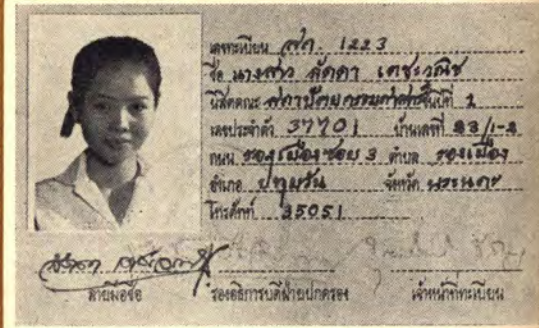 เลขทะเบียน สถ. 1223
ชื่อ นางสาว ลัดดา เตชะวณิช
นิสิตคณะ สถาปัตยกรรมศาสตร์ ชั้นปีที่ 1
เลขประจำตัว 37701 บ้านเลขที่ 23/1-2
ถนน รองเมืองซอย 3 ตำบล รองเมือง
อำเภอ ปทุมวัน จังหวัด พระนคร
โทรศัพท์ 35051
ลายมือชื่อ รองอธิการบดีฝ่ายปกครอง เจ้าหน้าที่ทะเบียน